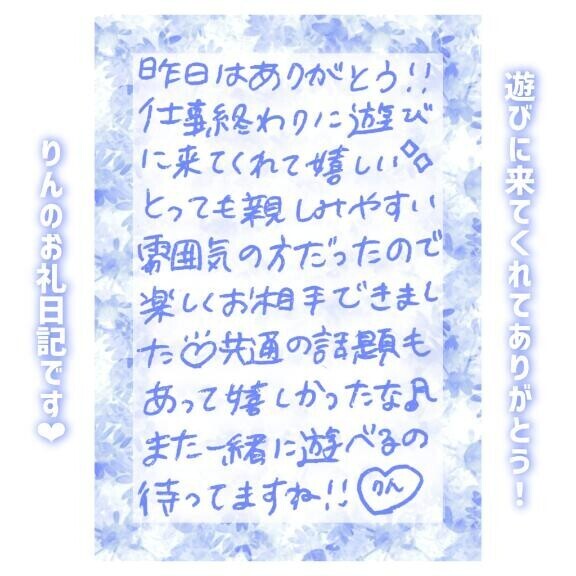 遊びに来てくれてありがとう！
昨日はありがとう!!
仕事終わりに遊び
に来てくれて嬉しい
とっても親しみやすい
雰囲気の方だったので
楽しくお相手できまし
た♡共通の話題も
あって嬉しかったな♪
また一緒に遊べるの
待ってますね!!
りん
りんのお礼日記です❤